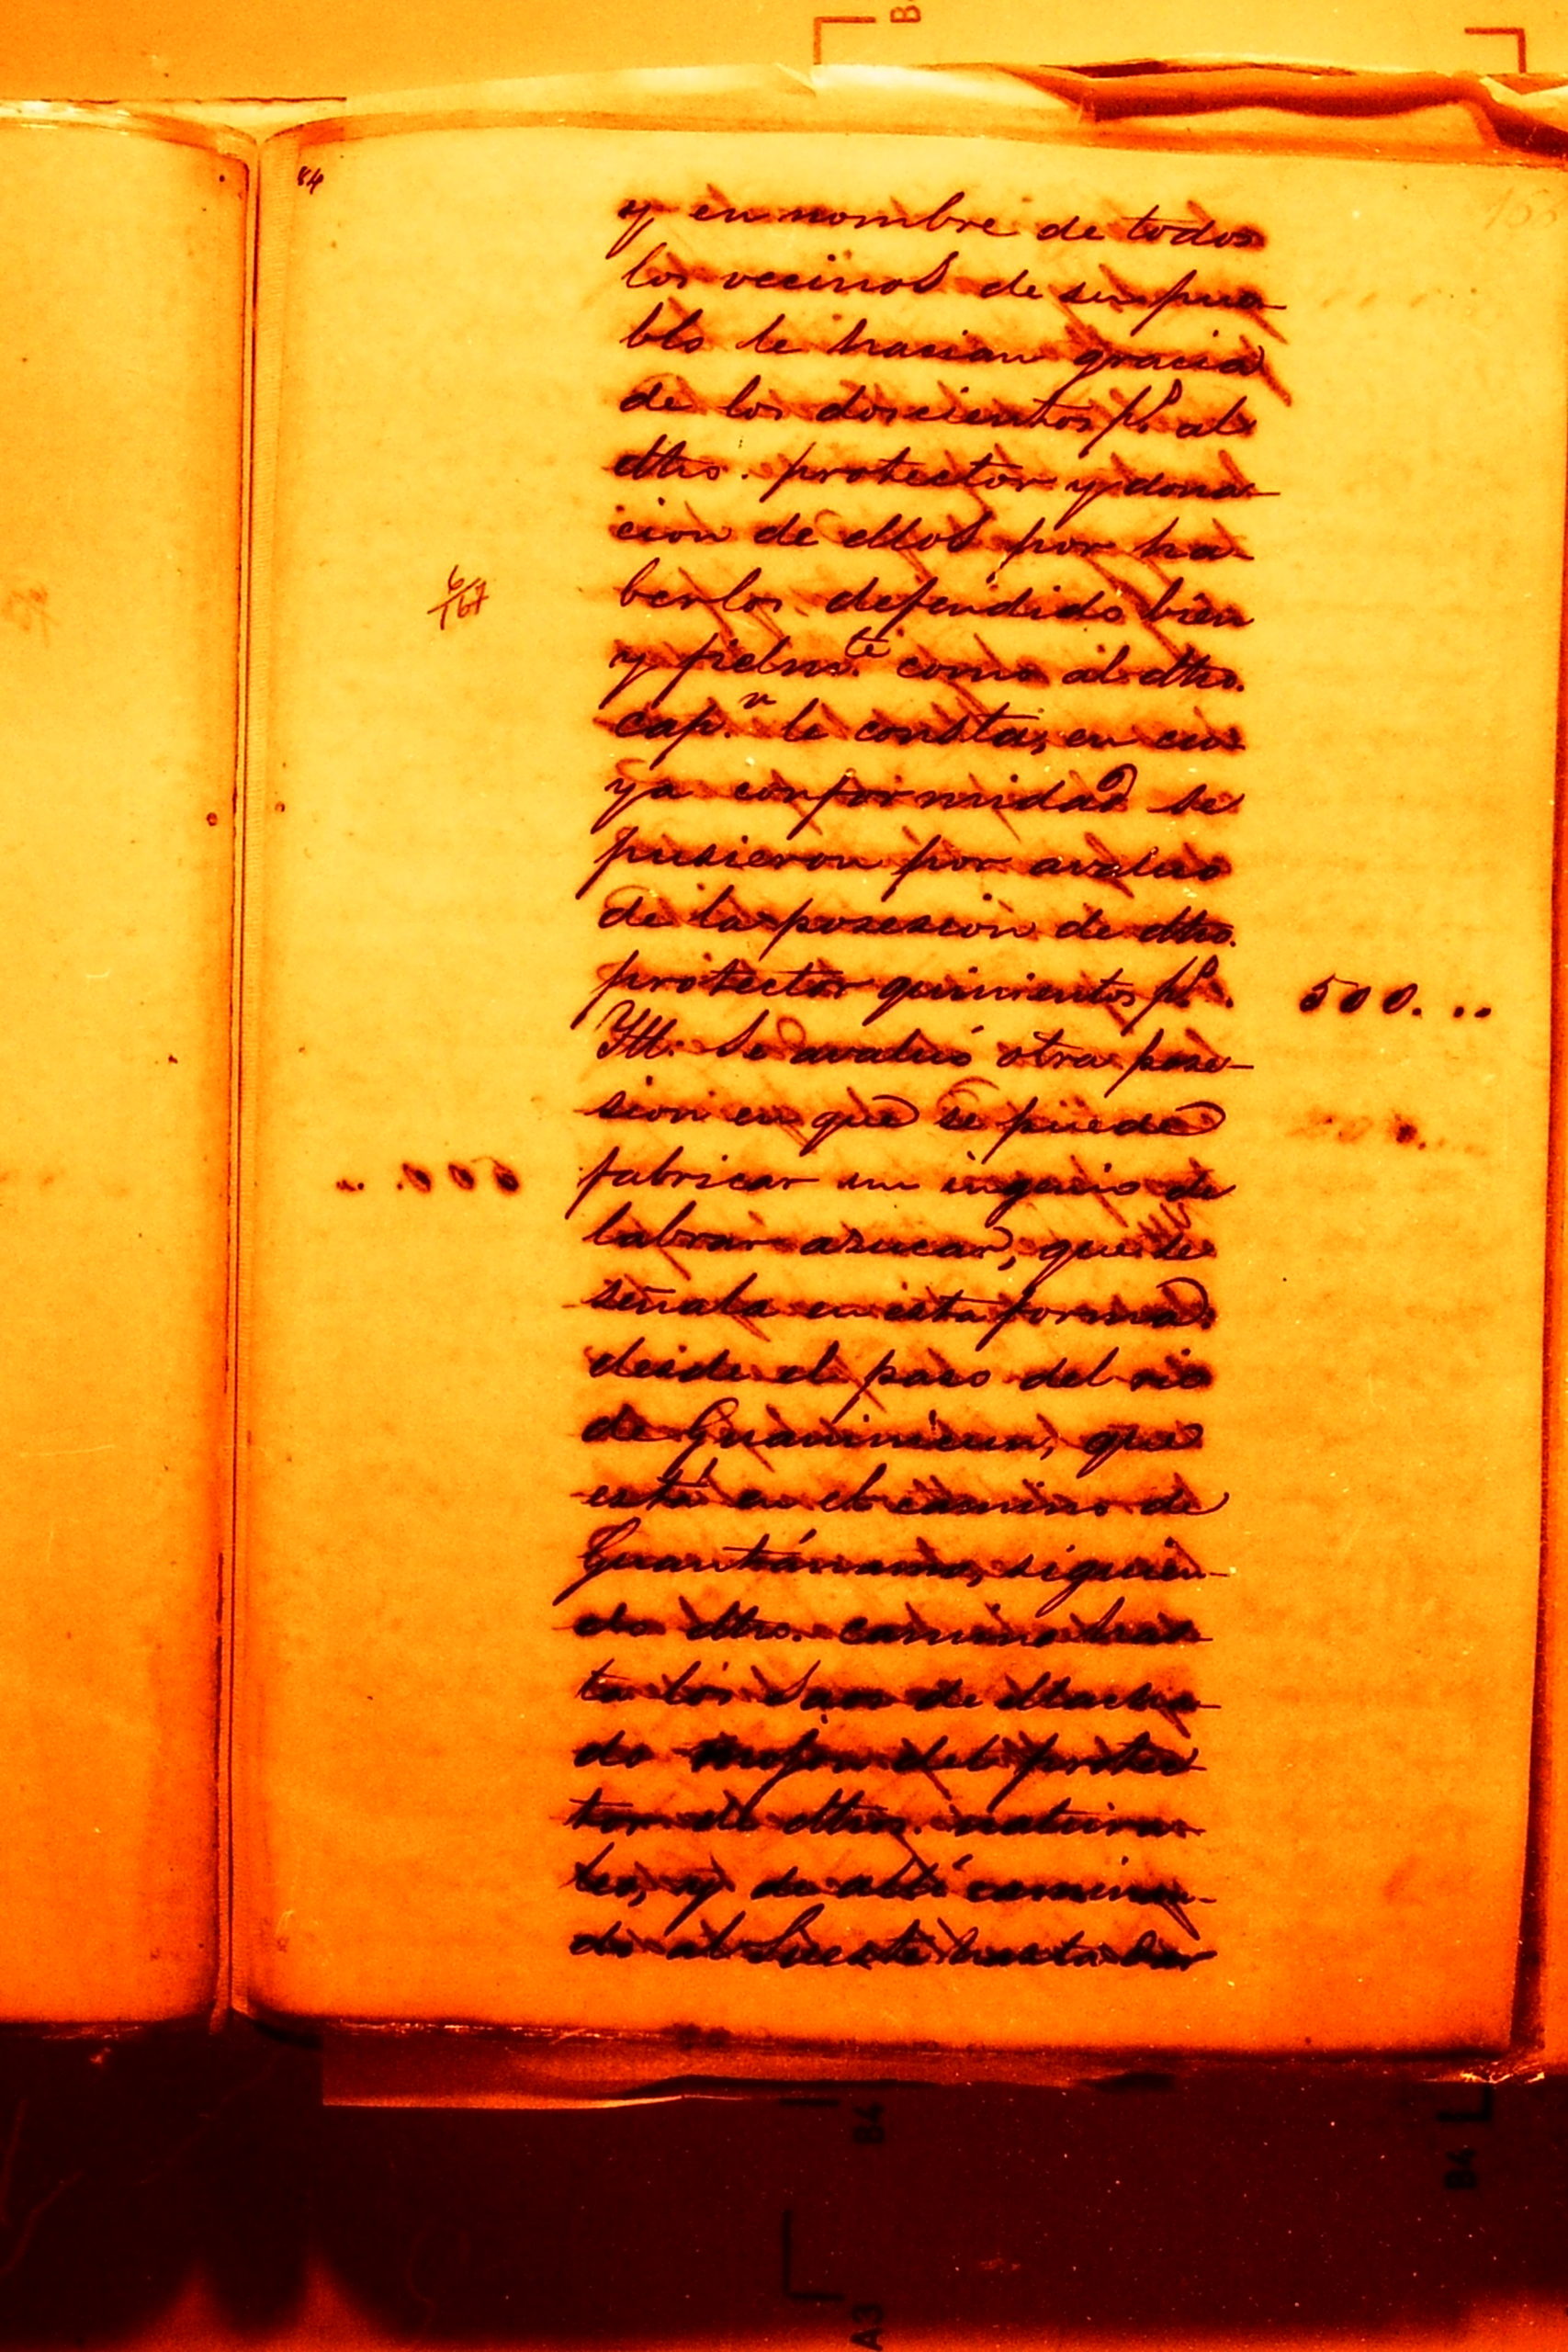 84
y en nombre de todos
los vecinos de su pue-
blo le hacian gracia
de los doscientos p.s al
dho. protector y dona-
cion de ellos por ha-
berlos defendido bien
6/167
y fielm.te como al dho.
cap.n le consta, en cu-
ya conformidad se
pusieron por avaluo
de la posesion de dho.
protector quinientos p.s. 500...
Ytt. Se avaluó otra pose-
sion en que se puede
fabricar un ingenio de
labrar azucar, que se
señala en esta forma:
desde el paso del rio
de Guaninicun, que
está en el camino de
Guantánamo, siguien-
do dho. camino has-
ta los de Macha-
do mojon del protec-
tor de dhos. natura-
les, y de allí caminan-
do al Sueste hasta dar
B4
B4
A3